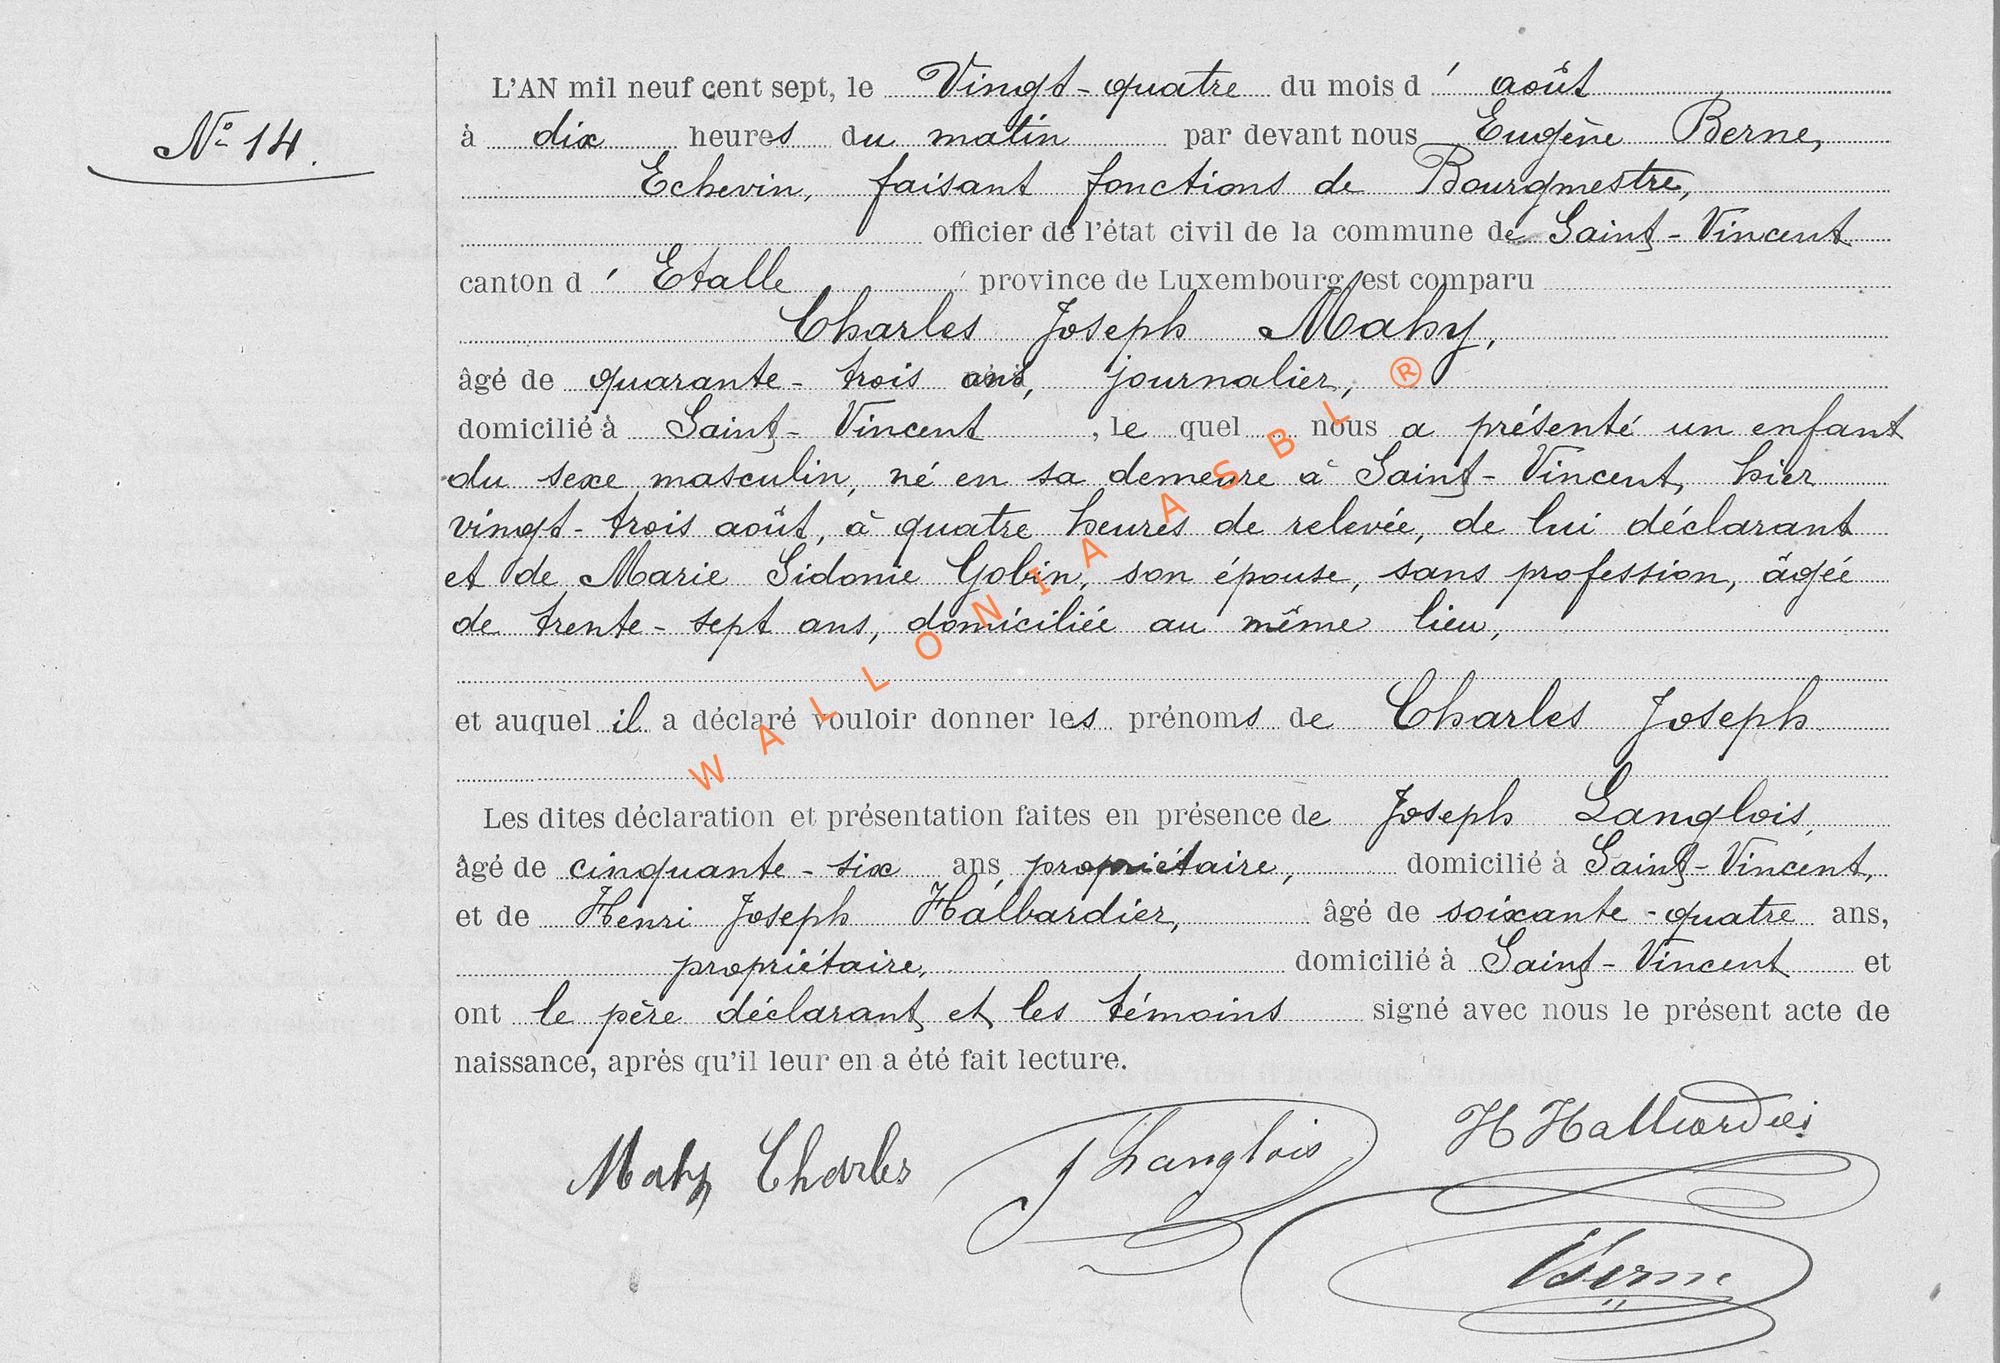 N° 14.
L'AN mil neuf cent sept, le Vingt-quatre du mois d' août
à dix heures du matin par devant nous Eugène Berne,
Echevin, faisant fonctions de Bourgmestre,
officier de l'état civil de la commune de Saint-Vincent
canton d' Etalle province de Luxembourg est comparu
Charles Joseph Mahy,
âgé de quarante-trois ans, journalier,
domicilié à Saint-Vincent, le quel nous a présenté un enfant
du sexe masculin, né en sa demeure à Saint-Vincent, hier
vingt-trois août, à quatre heures de relevée, de lui déclarant
et de Marie Sidonie Gobin, son épouse, sans profession, âgée
de trente-sept ans, domiciliée au même lieu,
et auquel il a déclaré vouloir donner les prénoms de Charles Joseph
Les dites déclaration et présentation faites en présence de Joseph Langlois,
âgé de cinquante-six ans, propriétaire, domicilié à Saint-Vincent,
et de Henri Joseph Halbardier, âgé de soixante-quatre ans,
propriétaire, domicilié à Saint-Vincent et
ont le père déclarant et les témoins signé avec nous le présent acte de
naissance, après qu'il leur en a été fait lecture.
Mahy Charles J Langlois H Halbardier
Berne
WALLONIA ASBL ®